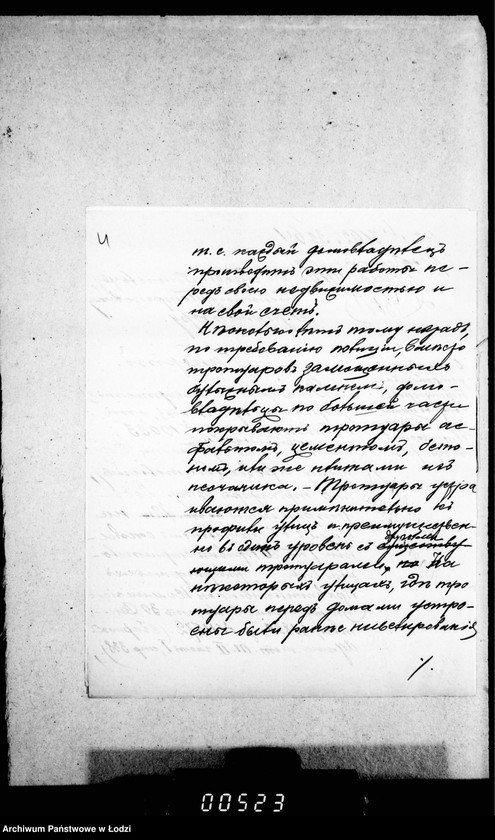 4
т. е. каждый домовладѣлецъ
производитъ эти работы пе-
редъ своею недвижимостью и
на свой счетъ.
тому назадъ,
по требованію полиціи, вмѣсто
тротуаровъ замощенныхъ
булыжнымъ камнемъ, домо-
владѣльцы по большей части
покрываютъ тротуары ас-
фальтомъ, цементомъ, бето-
номъ, или же плитами изъ
песчаника. – Тротуары устра
иваются примѣнительно къ
профили улицъ и преимуществен-
но въ одинъ уровень съ другими
существу-
ющими тротуарами, но На
нѣкоторыхъ улицахъ, гдѣ тро
туары передъ домами устро-
ены были ранѣе нивелированія
./.
00523
Archiwum Państwowe w Łodzi